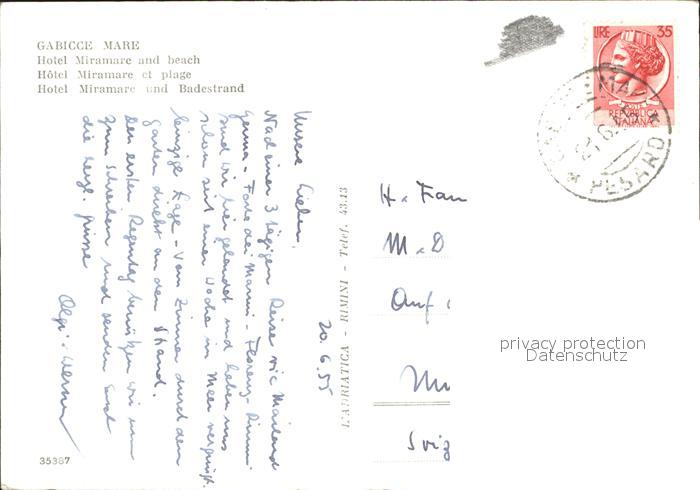 GABICCE MARE
Hotel Miramare and beach
Hôtel Miramare et plage
Hotel Miramare und Badestrand
LIRE 35
POSTE
REPUBBLICA
ITALIANA
PESARO
20. 6. 55
Unsere Lieben,
Nach einer 3 tägigen Reise via Mailand
Genua - Forte dei Marmi - Florenz - Rimini
sind wir hier gelandet und haben uns
schon seit einer Woche im Meer vergnügt.
Einzige Lage - Vom Zimmer durch den
Garten direkt an den Strand.
Den ersten Regentag benützen wir um
zum schreiben und senden Euch
die herzl. Grüsse
Werner
L'ADRIATICA - RIMINI - Telef. 4313
H. Fam
M. D
Auf
Mu
Sviz
privacy protection
Datenschutz
35387